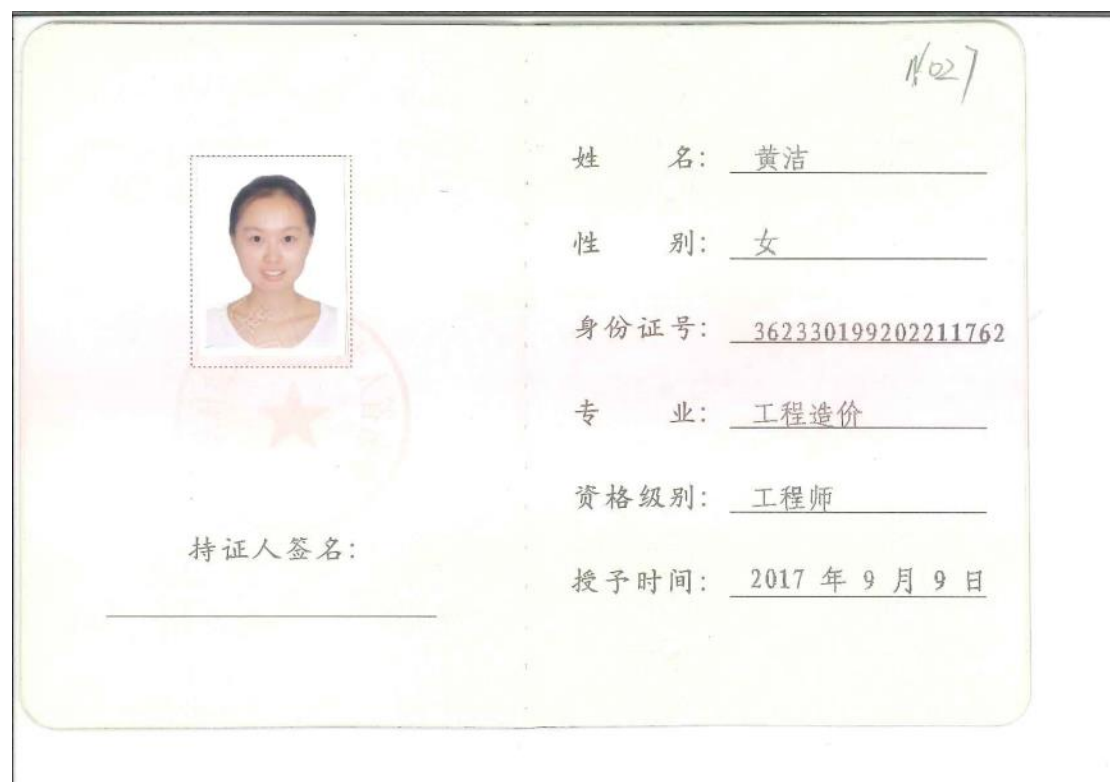 N027
姓名：黄洁
性别：女
身份证号：362330199202211762
专业：工程造价
资格级别：工程师
授予时间：2017 年 9 月 9 日
持证人签名：